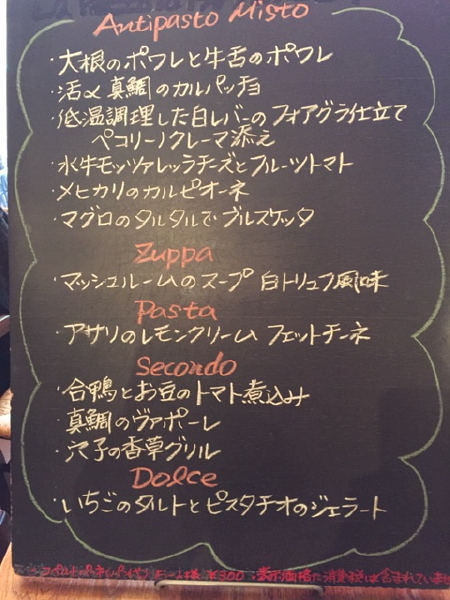 Antipasto Misto
・大根のポワレと牛舌のポワレ
・活〆真鯛のカルパッチョ
・低温調理した白レバーのフォアグラ仕立て
ペコリーノクレーマ添え
・水牛モッツァレッラチーズとフルーツトマト
・メヒカリのカルピオーネ
・マグロのタルタルでブルスケッタ
Zuppa
・マッシュルームのスープ 白トリュフ風味
Pasta
・アサリのレモンクリーム フェットチーネ
Secondo
・合鴨とお豆のトマト煮込み
・真鯛のヴァポーレ
・穴子の香草グリル
Dolce
・いちごのタルトとピスタチオのジェラート
¥300 表示価格に消費税は含まれていませ